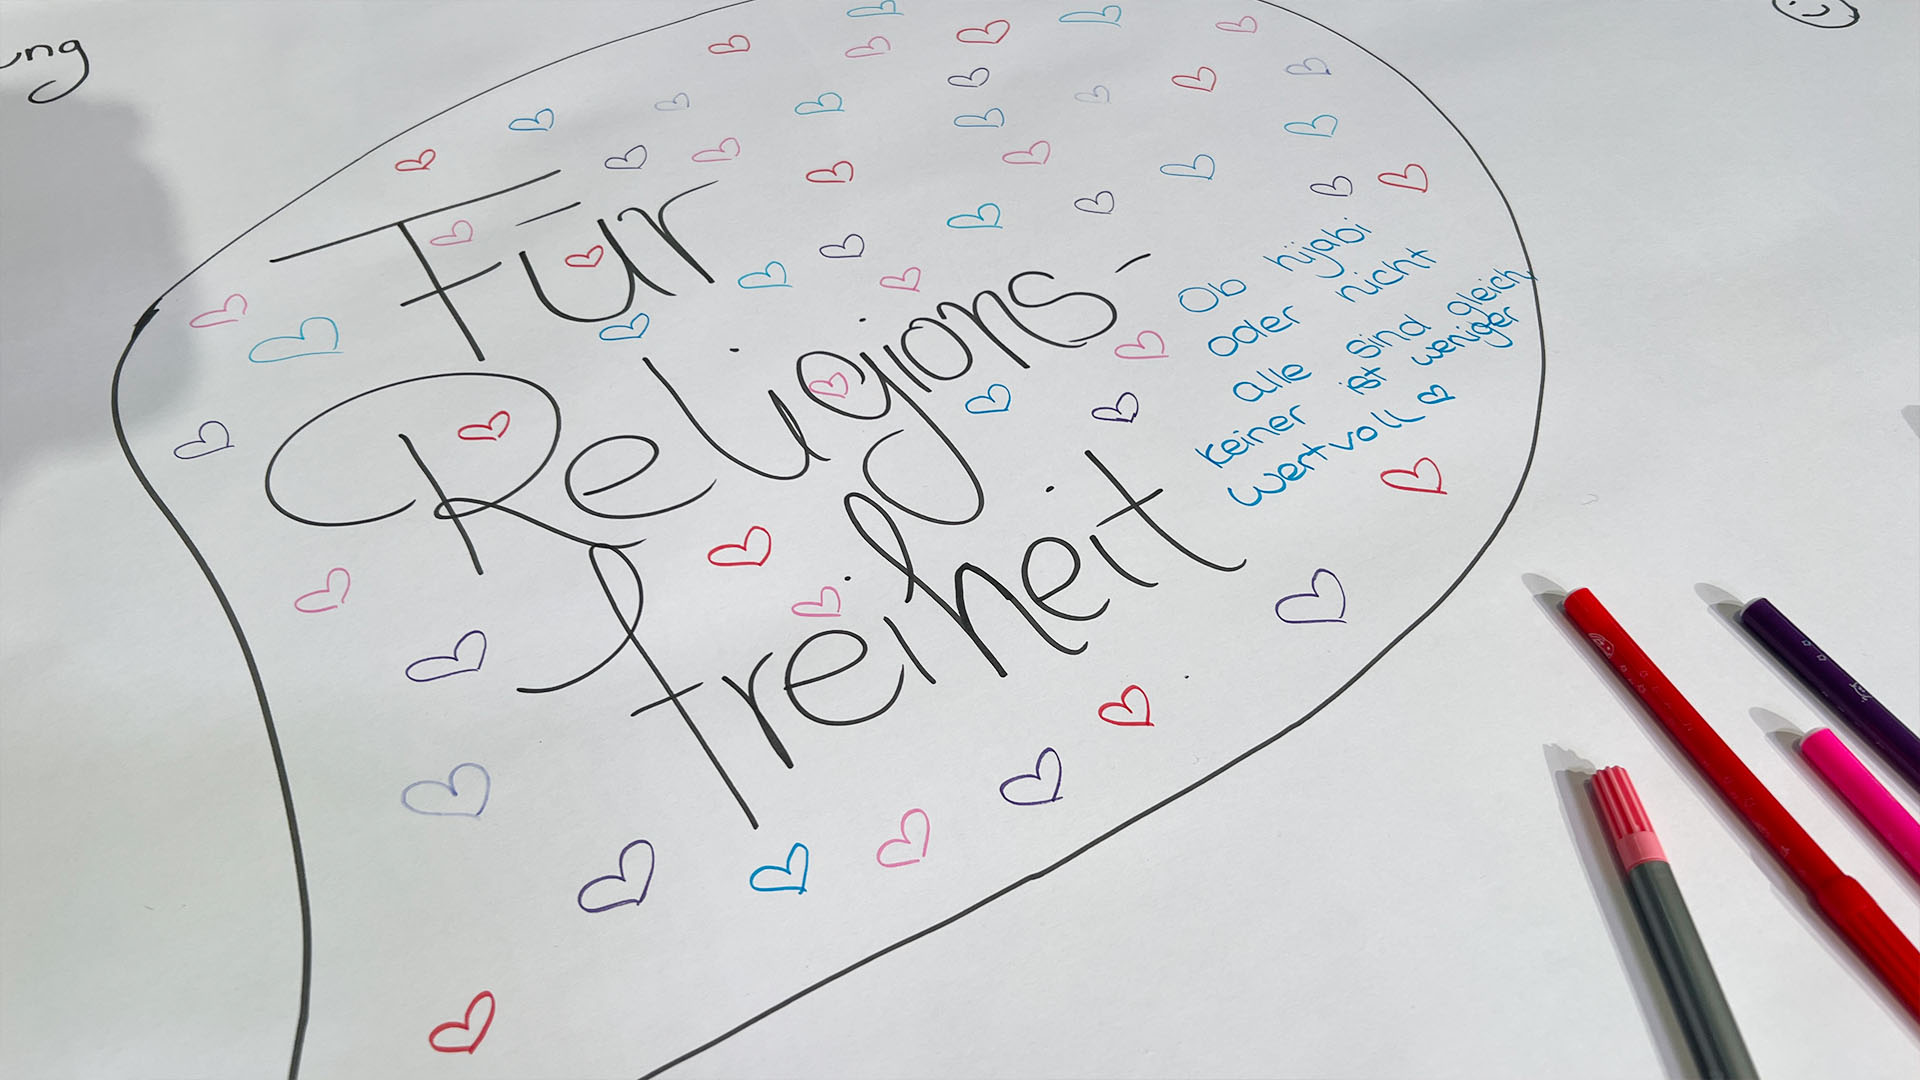 Für
Religions-
freiheit
Ob hijabi
oder nicht
alle sind gleich
keiner ist weniger
wertvoll